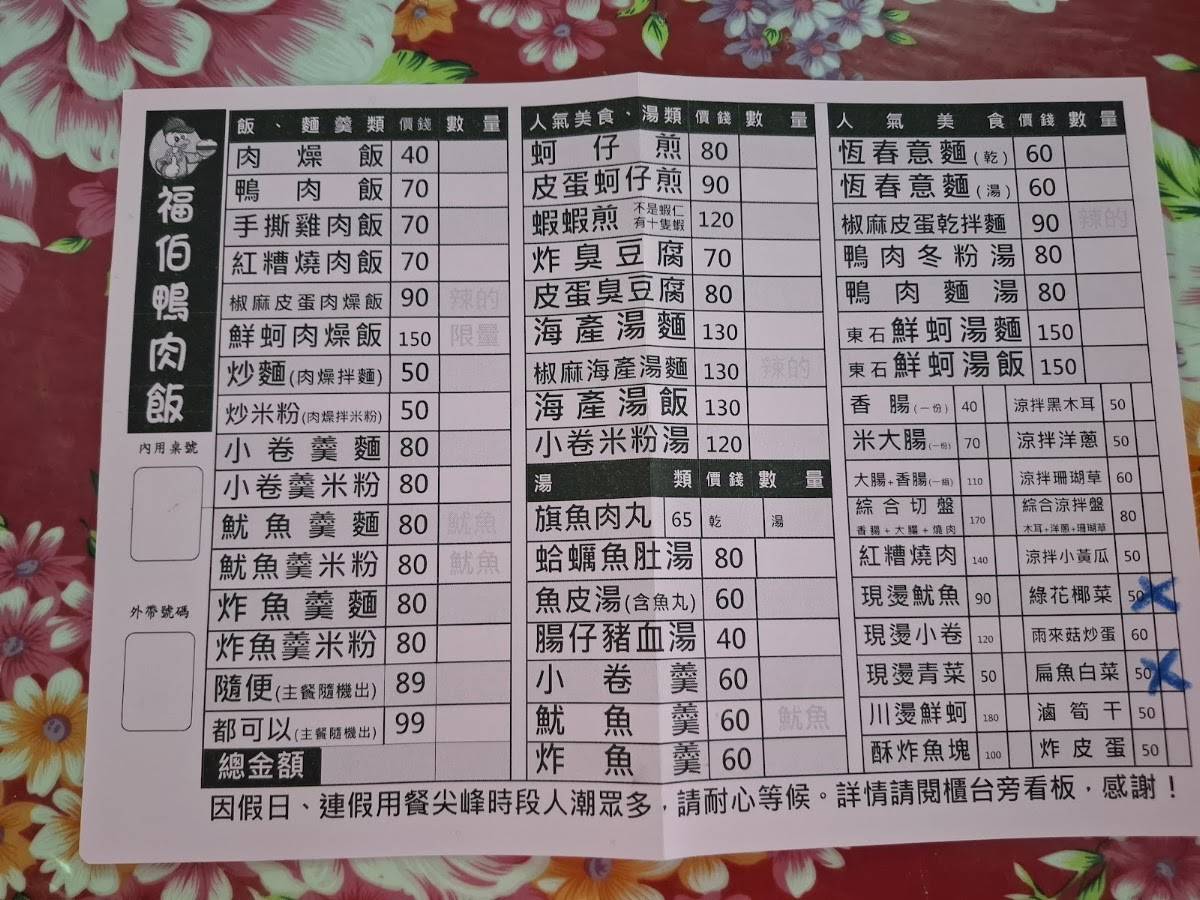 福伯鴨肉飯
內用桌號
外帶號碼
飯、麵羹類 價錢 數量
肉燥飯 40
鴨肉飯 70
手撕雞肉飯 70
紅糟燒肉飯 70
椒麻皮蛋肉燥飯 90 辣的
鮮蚵肉燥飯 150 限量
炒麵(肉燥拌麵) 50
炒米粉(肉燥拌米粉) 50
小卷羹麵 80
小卷羹米粉 80
魷魚羹麵 80 魷魚
魷魚羹米粉 80 魷魚
炸魚羹麵 80
炸魚羹米粉 80
隨便(主餐隨機出) 89
都可以(主餐隨機出) 99
總金額
人氣美食、湯類 價錢 數量
蚵仔煎 80
皮蛋蚵仔煎 90
蝦蝦煎 不是蝦仁 有十隻蝦 120
炸臭豆腐 70
皮蛋臭豆腐 80
海產湯麵 130
椒麻海產湯麵 130 辣的
海產湯飯 130
小卷米粉湯 120
湯類 價錢 數量
旗魚肉丸 65 乾 湯
蛤蠣魚肚湯 80
魚皮湯(含魚丸) 60
腸仔豬血湯 40
小卷羹 60
魷魚羹 60 魷魚
炸魚羹 60
人氣美食 價錢 數量
恆春意麵(乾) 60
恆春意麵(湯) 60
椒麻皮蛋乾拌麵 90 辣的
鴨肉冬粉湯 80
鴨肉麵湯 80
東石鮮蚵湯麵 150
東石鮮蚵湯飯 150
香腸(一份) 40 涼拌黑木耳 50
米大腸(一份) 70 涼拌洋蔥 50
大腸+香腸(一組) 110 涼拌珊瑚草 60
綜合切盤 170 綜合涼拌盤 80
香腸+大腸+燒肉 木耳+洋蔥+珊瑚草
紅糟燒肉 140 涼拌小黃瓜 50
現燙魷魚 90 綠花椰菜 50 X
現燙小卷 120 雨來菇炒蛋 60
現燙青菜 50 扁魚白菜 50 X
川燙鮮蚵 180 滷筍干 50
酥炸魚塊 100 炸皮蛋 50
因假日、連假用餐尖峰時段人潮眾多，請耐心等候。詳情請閱櫃台旁看板，感謝！